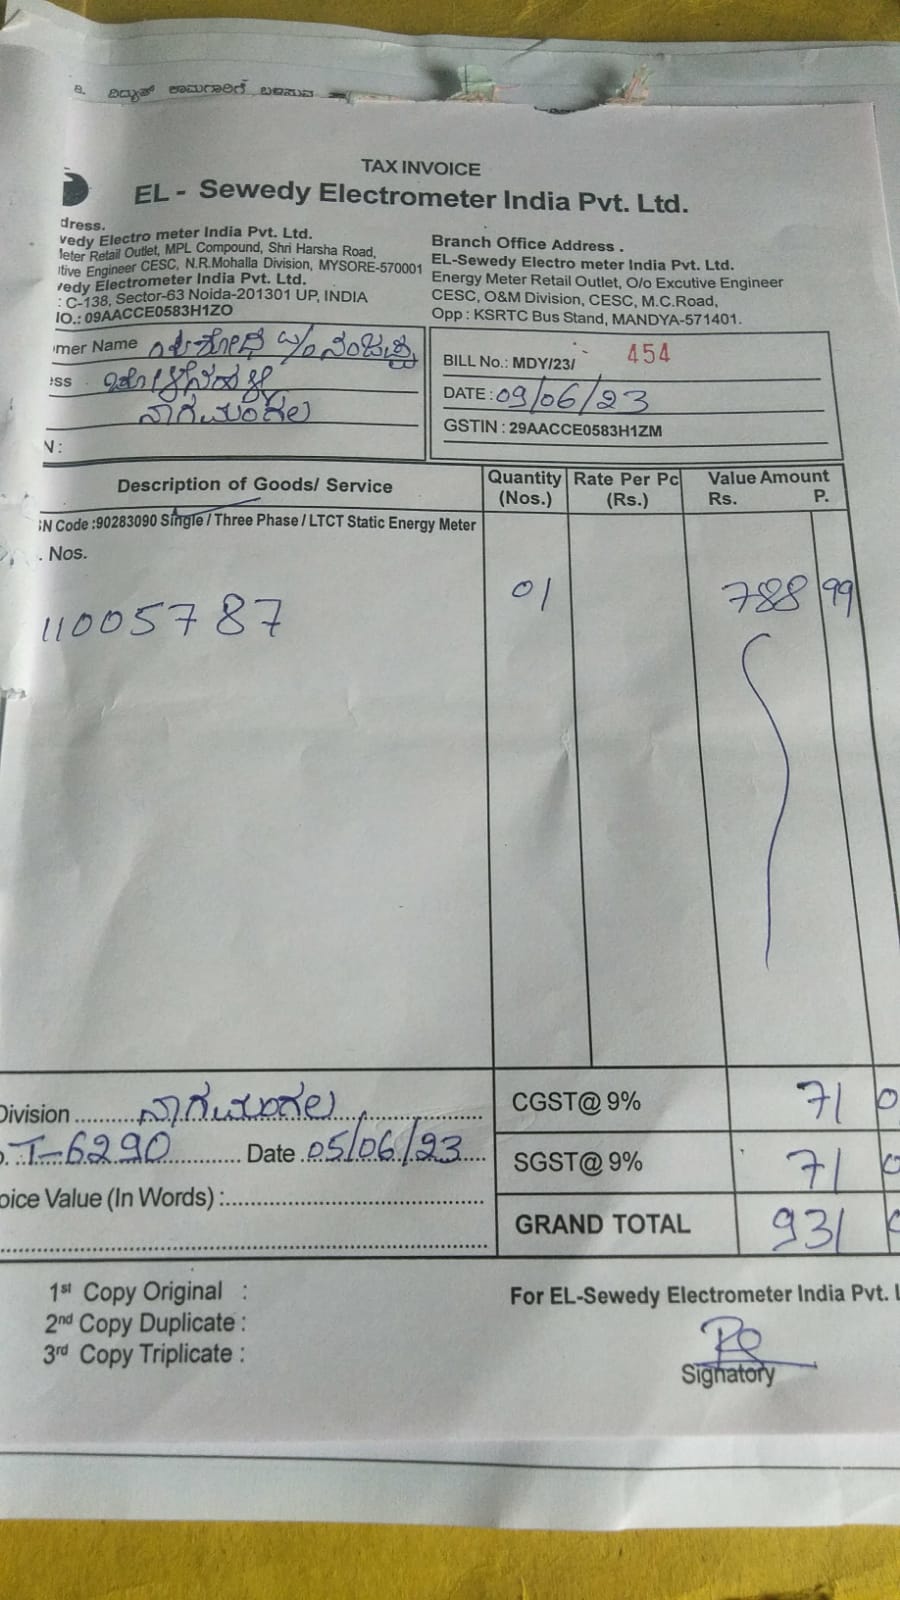 ಕಿ. ವಿದ್ಯುತ್ ಕಾಮಗಾರಿಗೆ ಬಳಸುವ
TAX INVOICE
EL - Sewedy Electrometer India Pvt. Ltd.
dress.
vedy Electro meter India Pvt. Ltd.
Meter Retail Outlet, MPL Compound, Shri Harsha Road,
utive Engineer CESC, N.R.Mohalla Division, MYSORE-570001
vedy Electrometer India Pvt. Ltd.
: C-138, Sector-63 Noida-201301 UP, INDIA
IO.: 09AACCE0583H1ZO
Branch Office Address .
EL-Sewedy Electro meter India Pvt. Ltd.
Energy Meter Retail Outlet, O/o Excutive Engineer
CESC, O&M Division, CESC, M.C.Road,
Opp : KSRTC Bus Stand, MANDYA-571401.
mer Name ಯಶೋಧ W/o ನಂಜಪ್ಪ
ess
ನಾಗಮಂಗಲ
N :
BILL No.: MDY/23/ 454
DATE : 09/06/23
GSTIN : 29AACCE0583H1ZM
Description of Goods/ Service Quantity (Nos.) Rate Per Pc (Rs.) Value Amount Rs. P.
SN Code :90283090 Single / Three Phase / LTCT Static Energy Meter
. Nos.
11005787 01 788 99
Division ನಾಗಮಂಗಲ CGST@ 9% 71 0
o. T-6290 Date 05/06/23 SGST@ 9% 71 0
oice Value (In Words) : GRAND TOTAL 931
1st Copy Original :
2nd Copy Duplicate :
3rd Copy Triplicate :
For EL-Sewedy Electrometer India Pvt. L
Signatory